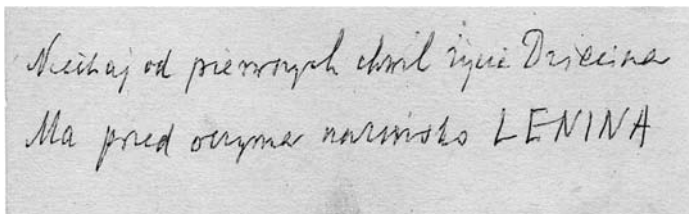 Niechaj od pierwszych chwil życie Dziecina
Ma przed oczyma nazwisko LENINA